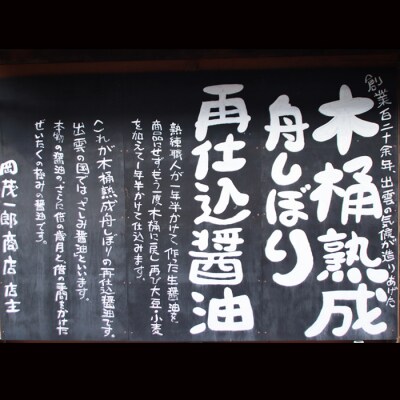 創業百二十余年、出雲の気候が造りあげた
木桶熟成
舟しぼり
再仕込醤油
熟練職人が一年半かけて作った生醤油を、
商品にせず、もう一度、木桶に戻し、再び大豆・小麦
を加えて一年半かけて仕込みます。
これが木桶熟成舟しぼりの再仕込醤油です。
出雲の国では「さしみ醤油」といいます。
本物の醤油の、さらに倍の歳月と、倍の手間をかけた
ぜいたくの極みの醤油です。
岡茂一郎商店 店主